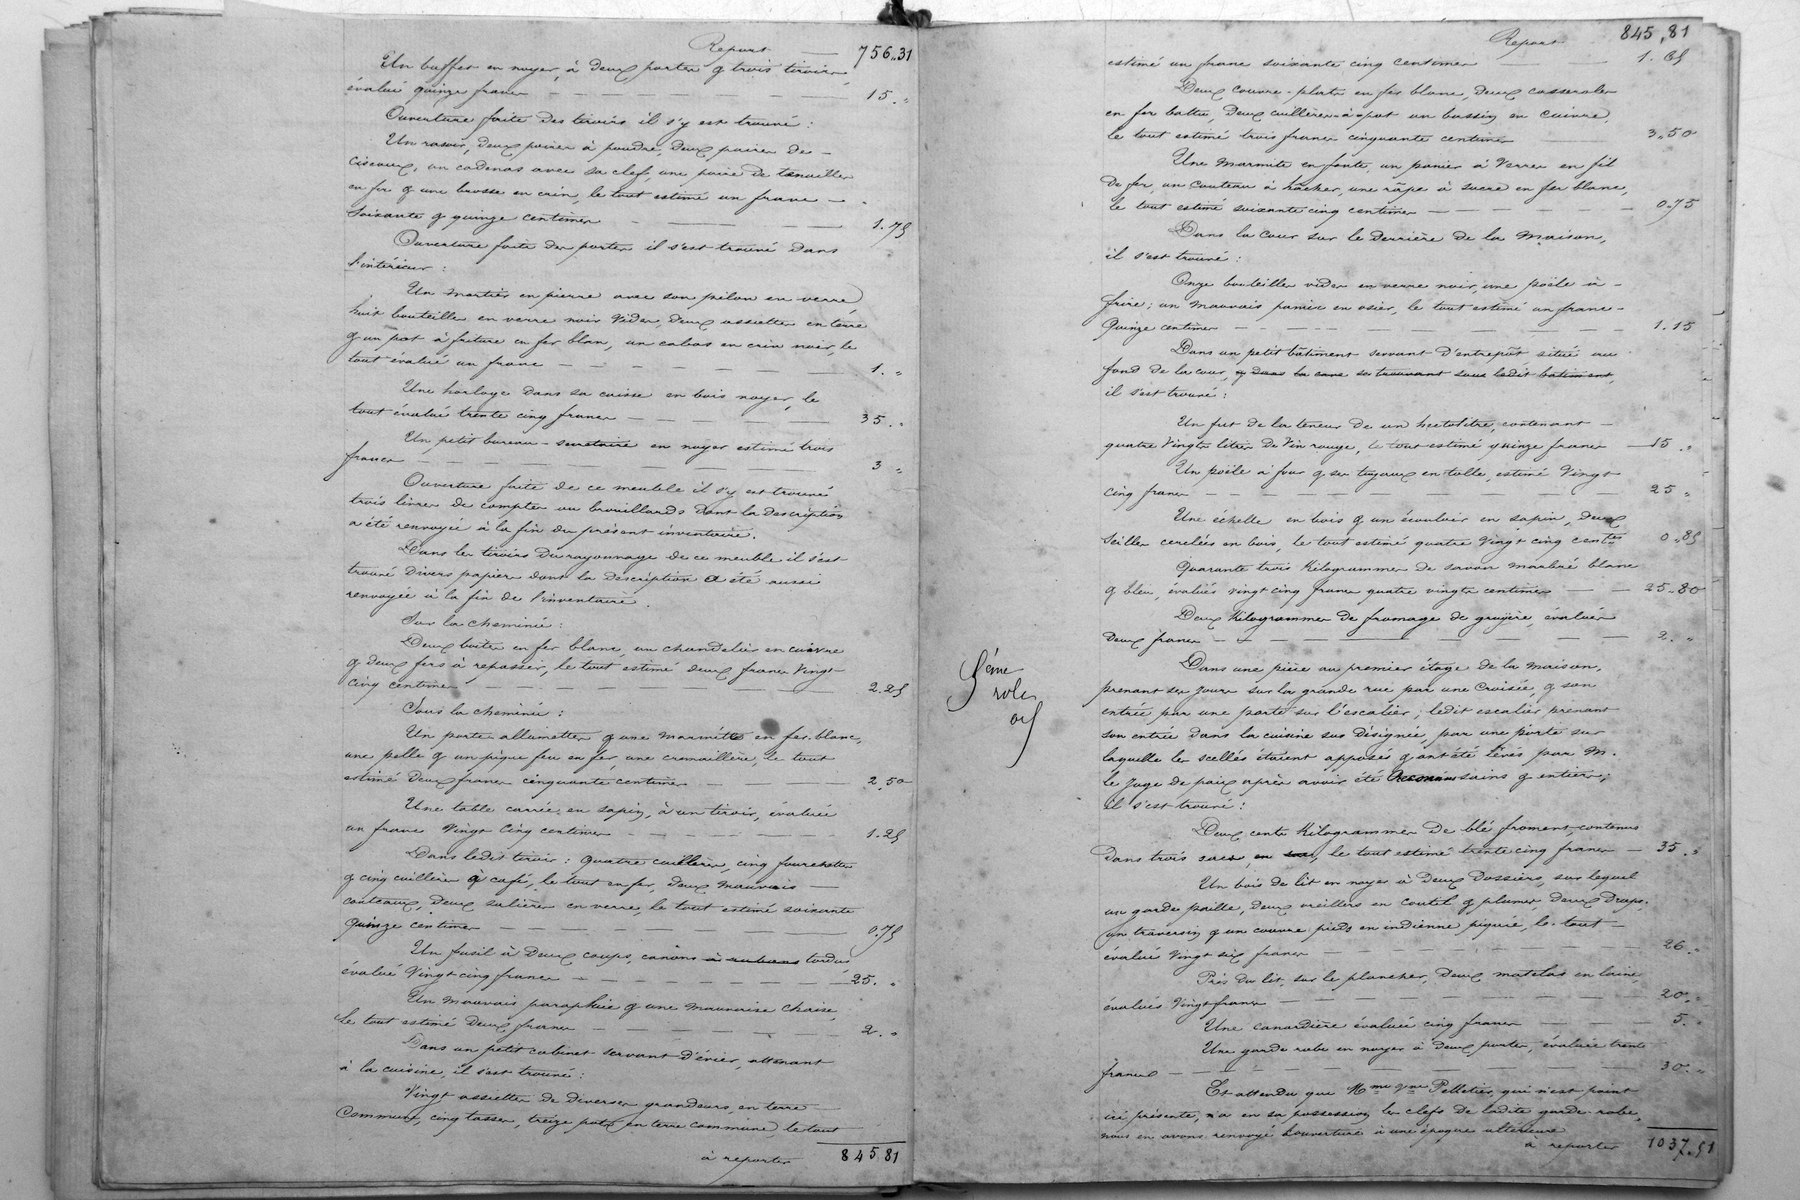 Report — 756.31
Un buffet en noyer, à deux portes & trois tiroirs,
évalué quinze francs — 15. "
Ouverture faite des tiroirs il s'y est trouvé :
Un rasoir, deux poires à poudre, deux paires de
ciseaux, un cadenas avec sa clef, une paire de tenailles
en fer & une brosse en crin, le tout estimé un franc
soixante & quinze centimes — 1.75
Ouverture faite des portes il s'est trouvé dans
l'intérieur :
Un mortier en pierre avec son pilon en verre,
huit bouteilles en verre noir vides, deux assiettes en terre
& un pot à friture en fer blan, un cabas en crin noir, le
tout évalué un franc — 1. "
Une horloge dans sa caisse en bois noyer, le
tout évalué trente cinq francs — 35. "
Un petit bureau-secrétaire en noyer estimé trois
francs — 3 "
Ouverture faite de ce meuble il s'y est trouvé
trois livres de comptes ou brouillards dont la description
a été renvoyée à la fin du présent inventaire.
Dans les tiroirs du rayonnage de ce meuble il s'est
trouvé divers papiers dont la description a été aussi
renvoyée à la fin de l'inventaire.
Sur la cheminée :
Deux boites en fer blanc, un chandelier en cuivre
& deux fers à repasser, le tout estimé deux francs vingt
cinq centimes — 2.25
Sous la cheminée :
Un porte allumettes & une marmitte en fer-blanc,
une pelle & un pique feu en fer, une cremaillère, le tout
estimé deux francs cinquante centimes — 2.50
Une table carrée en sapin, à un tiroir, évaluée
un franc vingt cinq centimes — 1.25
Dans ledit tiroir : quatre cuillères, cinq fourchettes
& cinq cuillères à café, le tout en fer, deux mauvais
couteaux, deux salières en verre, le tout estimé soixante
quinze centimes — 0.75
Un fusil à deux coups, canons à rubans tordus,
évalué vingt cinq francs — 25. "
Un mauvais parapluie & une mauvaise chaise,
le tout estimé deux francs — 2. "
Dans un petit cabinet servant d'évier, attenant
à la cuisine, il s'est trouvé :
Vingt assiettes de diverses grandeurs en terre
commune, cinq tasses, treize pots en terre commune, le tout
à reporter 845 81
Report 845.81
estimé un franc soixante cinq centimes — 1. 65
Deux couvre-plats en fer blanc, deux casseroles
en fer battu, deux cuillères à pot un bassin en cuivre,
le tout estimé trois francs cinquante centimes — 3.50
Une marmite en fonte, un panier à verres en fil
de fer, un couteau à hâcher, une râpe à sucre en fer blanc,
le tout estimé soixante cinq centimes — 0.75
Dans la cour sur le derrière de la maison,
il s'est trouvé :
Onze bouteilles vides en verre noir, une poële à
frire, un mauvais panier en osier, le tout estimé un franc
quinze centimes — 1.15
Dans un petit bâtiment servant d'entrepôt situé au
fond de la cour, & dans la cave se trouvant sous ledit bâtiment,
il s'est trouvé :
Un fut de la teneur de un hectolitre, contenant
quatre vingts litres de vin rouge, le tout estimé quinze francs — 15 . "
Un poële à four & ses tuyaux en tolle, estimé vingt
cinq francs — 25 "
Une échelle en bois & un évouloir en sapin, deux
seilles cerclées en bois, le tout estimé quatre vingt cinq centes 0.85
Quarante trois kilogrammes de savon marbré blanc
& bleu, évalués vingt cinq francs quatre vingts centimes — 25.80
Deux kilogrammes de fromage de gruyère, évalués
deux francs — 2. "
Dans une pièce au premier étage de la maison,
prenant ses jours sur la grande rue par une croisée, & son
entrée par une porte sur l'escalier ; ledit escalier prenant
son entrée dans la cuisine sus désignée, par une porte sur
laquelle les scellés étaient apposés & ont été levés par M.
le Juge de paix après avoir été reconnus sains & entiers ;
il s'est trouvé :
5ème
role
Deux cents kilogrammes de blé froment, contenus
dans trois sacs, le tout estimé trente cinq francs — 35. "
Un bois de lit en noyer à deux dossiers, sur lequel
un garde paille, deux oreillers en coutil & plumes, deux draps,
un traversin & un couvre pieds en indienne piquée, le tout
évalués vingt six francs — 26. "
Près du lit, sur le plancher, deux matelas en laine,
évalués vingt francs — 20. "
Une canardière évaluée cinq francs — 5. "
Une garde robe en noyer à deux portes, évaluée trente
francs — 30. "
Et attendu que Mme Vve Pelletier, qui n'est point
ici présente, a en sa possession les clefs de ladite garde-robe,
nous en avons renvoyé l'ouverture à une époque ultérieure
à reporter 1037.51